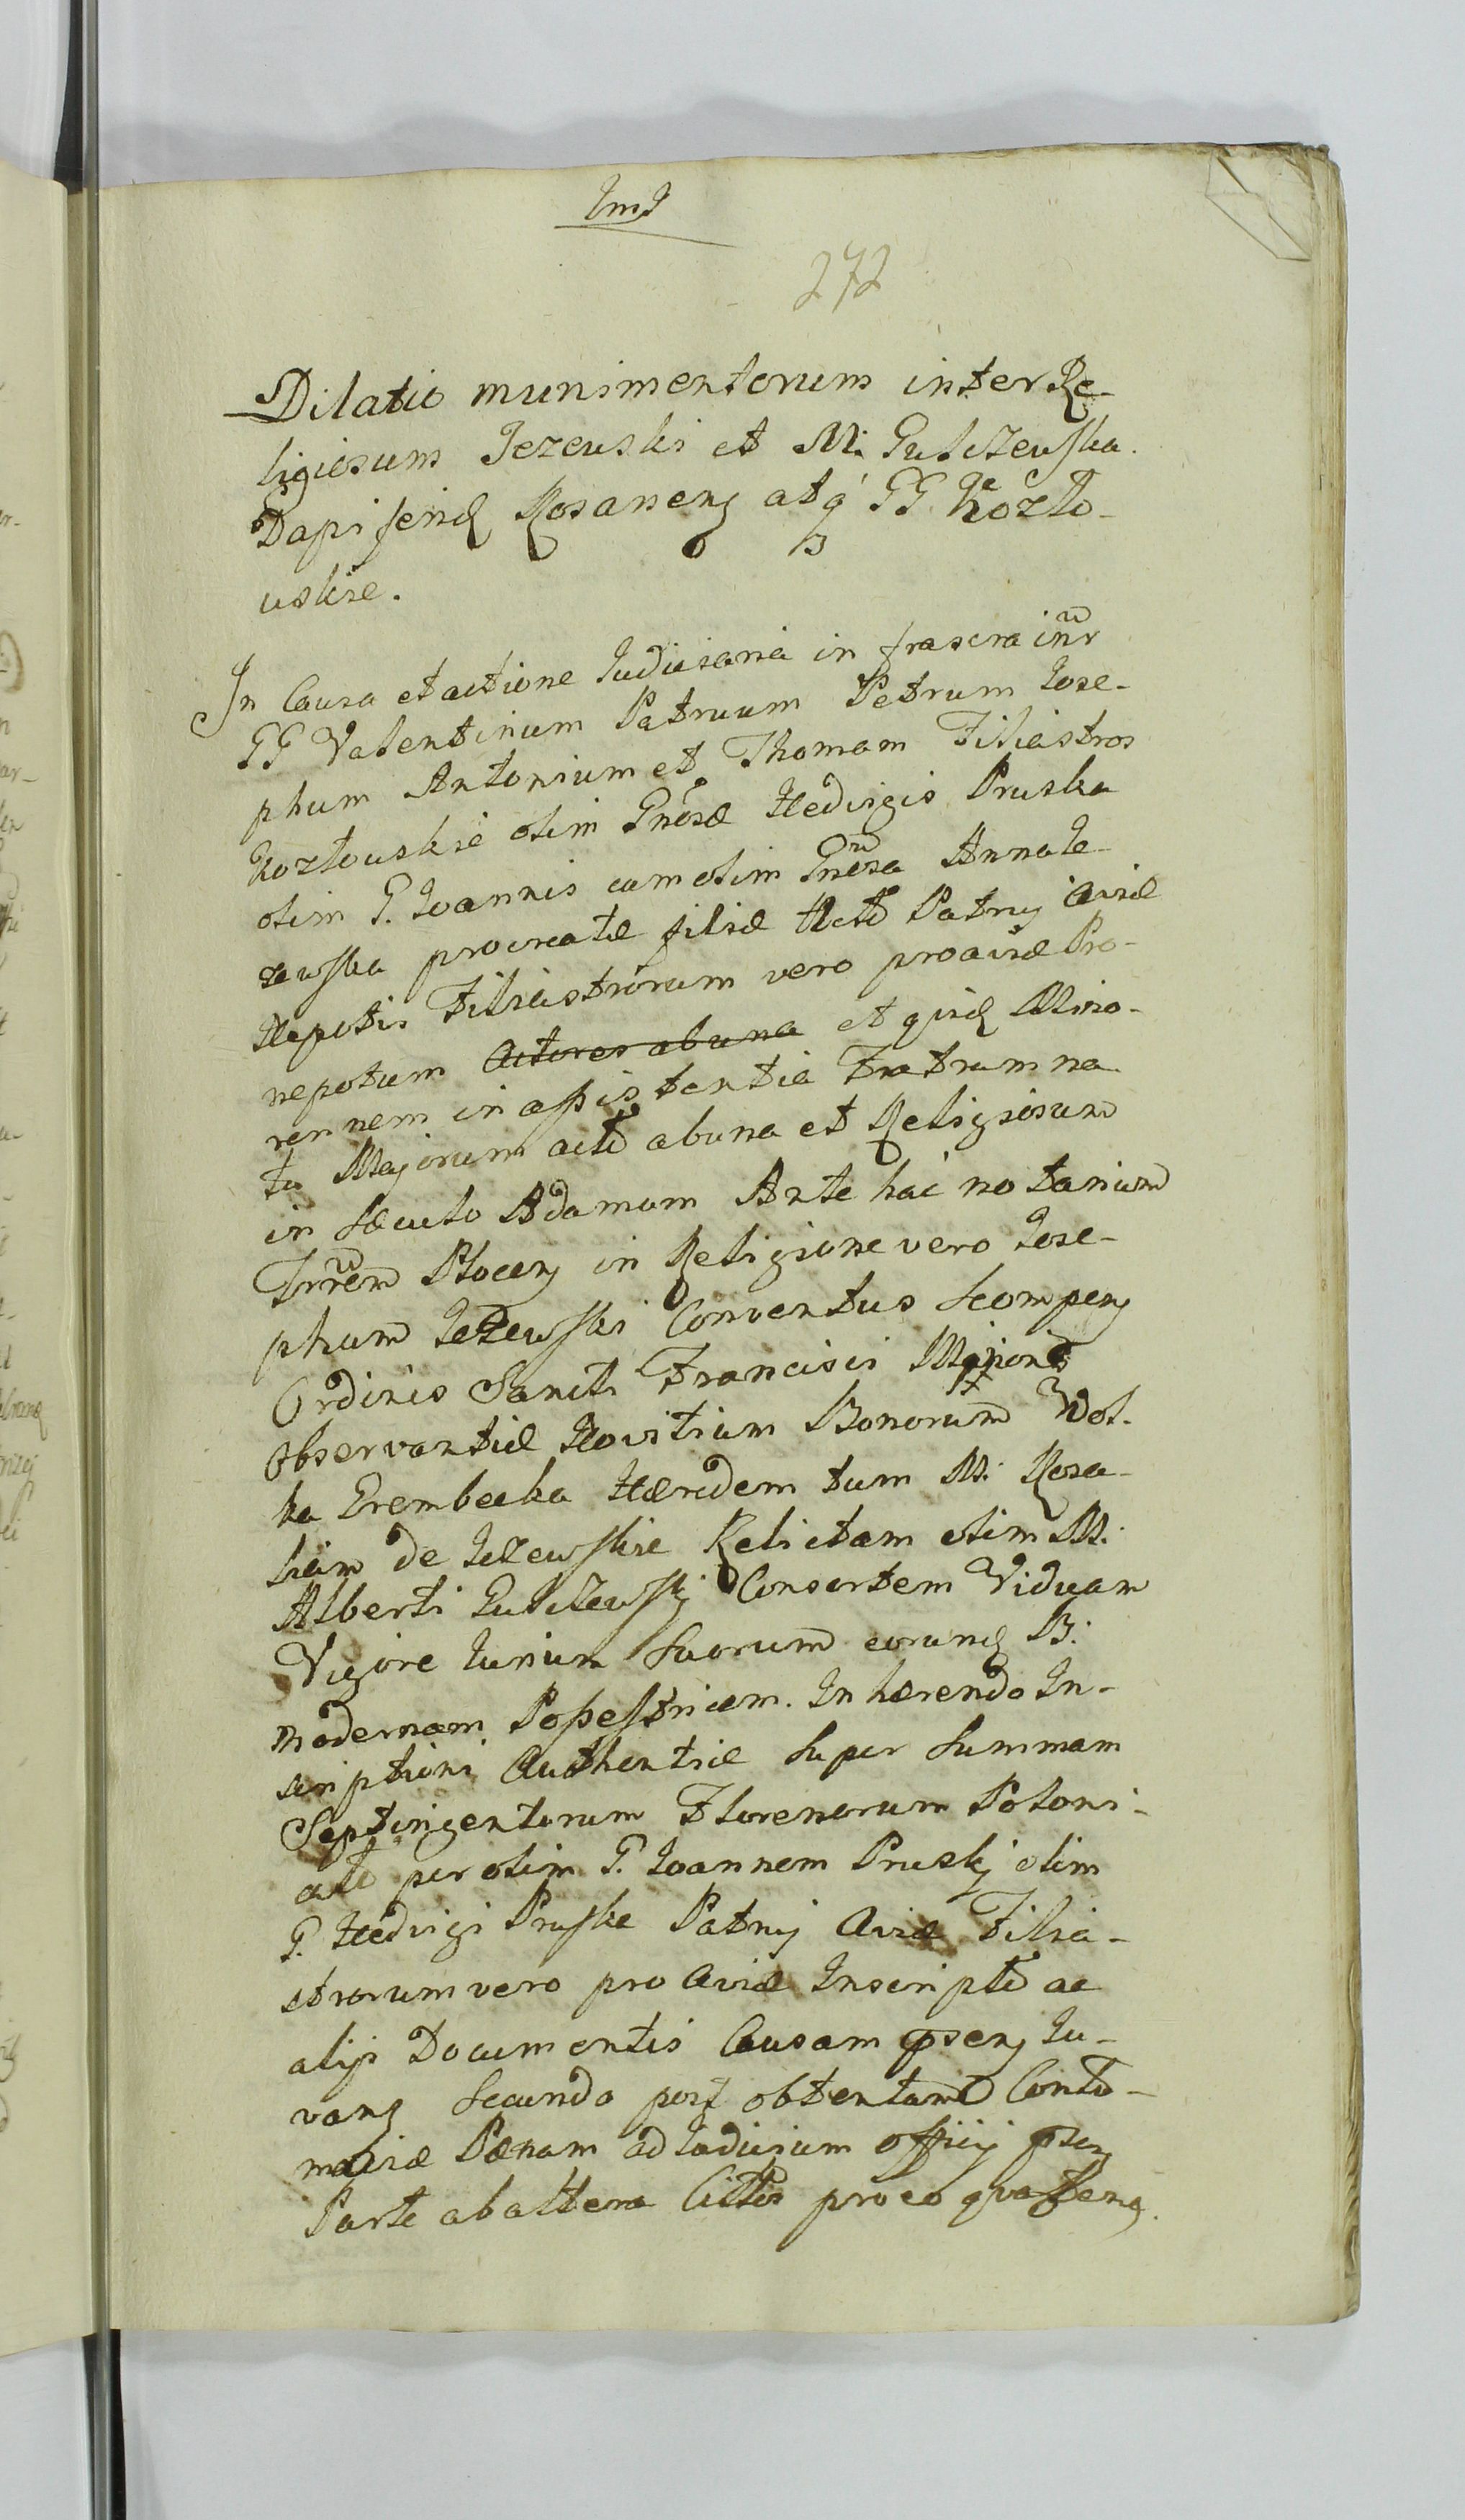 272
Dilatio munimentorum inter Re-
ligiosum Jezewski et M. Gulczewska
Dapiferid Rosaneng atq GG Kozło-
wskie.
In Causa et actione Judiciaria infrascra intr
GG Valentinum Patruum Petrum Jose-
phum Antonium et Thomam Filiastros
Kozłowskie olim Gnosæ Hedvigis Pruska
olim G. Joannis cum olim Gnosa Anna Je-
zewska procreatæ filiæ Patruj Aviæ
Nepotis Filiastrorum vero proaviæ Pro-
nepotum Actores ab una et qvid Mino-
rennem in assistentia Fratrum na-
tu Majorum act ab una et Religiosum
in Sæculo Adamum Ante hac notarium
Trrem Plocen in Religione vero Jose-
phum Jezewski Conventus Scompen
Ordinis Sancti Francisci
Observantiæ Novitium Bonorum Wol-
ka Brembecka Hæredem tum M. Rosa-
liam de Jezewskie Relictam olim M.
Alberti Gulczewskj Consortem Viduam
Vigore Jurium Suorum eorund B.
modernam Possestricem. Inhærendo In-
scriptioni Authenticæ Super Summam
Septingentorum Florenorum Poloni-
cal per olim G. Joannem Pruskj olim
G. Hedvigi Pruske Patruj Aviæ Filia-
strorum vero pro Aviæ Inscript ac
alijs Documentis Causam psen Ju-
van Secundo post obtentam Contu-
maciæ Pænam ad Judicium Officij psen
Parte ab altera Cittos pro eo qvaten